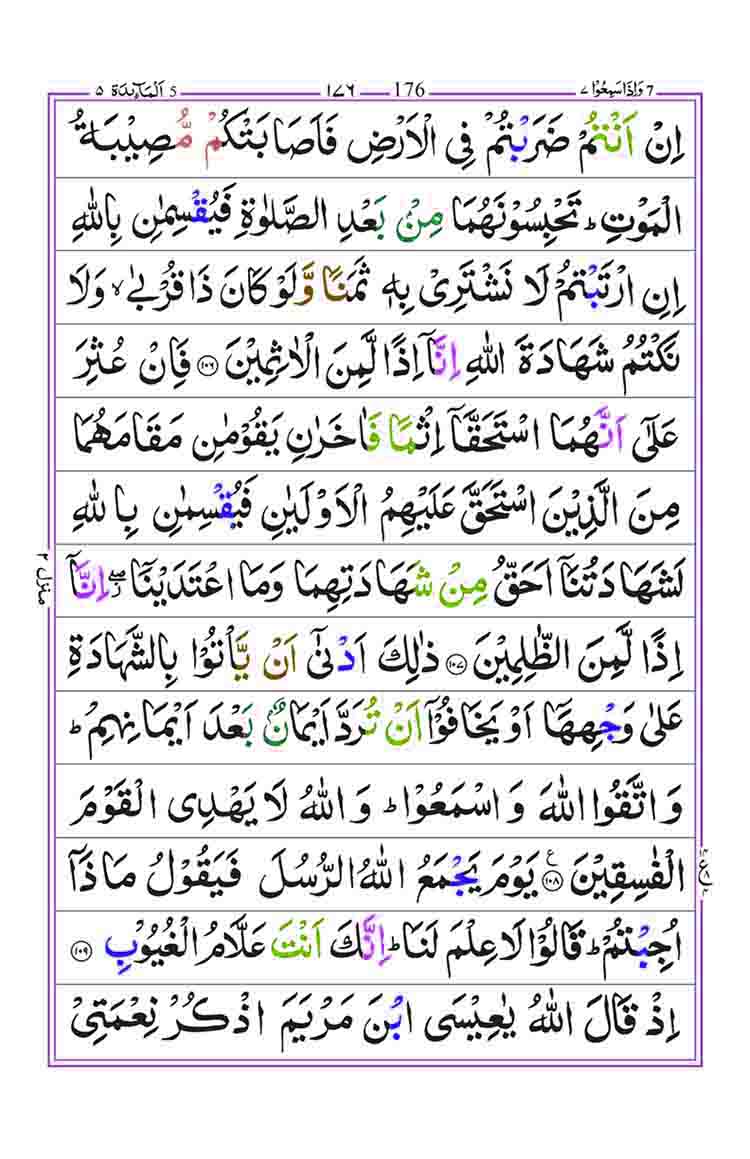 7 وَاِذَاسَمِعُوْا ٧ 176 ١٧٦ 5 اَلْمَآىِٕدَة ٥
اِنْ اَنْتُمْ ضَرَبْتُمْ فِى الْاَرْضِ فَاَصَابَتْكُمْ مُّصِيْبَةُ
الْمَوْتِ ؕ تَحْبِسُوْنَهُمَا مِنْۢ بَعْدِ الصَّلٰوةِ فَيُقْسِمٰنِ بِاللّٰهِ
اِنِ ارْتَبْتُمْ لَا نَشْتَرِىْ بِهٖ ثَمَنًا وَّلَوْ كَانَ ذَا قُرْبٰى ۙ وَلَا
نَكْتُمُ شَهَادَةَ اللّٰهِ اِنَّاۤ اِذًا لَّمِنَ الْاٰثِمِيْنَ ۝١٠٦ فَاِنْ عُثِرَ
عَلٰٓى اَنَّهُمَا اسْتَحَقَّاۤ اِثْمًا فَاٰخَرٰنِ يَقُوْمٰنِ مَقَامَهُمَا
مِنَ الَّذِيْنَ اسْتَحَقَّ عَلَيْهِمُ الْاَوْلَيٰنِ فَيُقْسِمٰنِ بِاللّٰهِ
لَشَهَادَتُنَاۤ اَحَقُّ مِنْ شَهَادَتِهِمَا وَمَا اعْتَدَيْنَاۤ ۖ ز اِنَّاۤ
اِذًا لَّمِنَ الظّٰلِمِيْنَ ۝١٠٧ ذٰلِكَ اَدْنٰٓى اَنْ يَّاْتُوْا بِالشَّهَادَةِ
عَلٰى وَجْهِهَاۤ اَوْ يَخَافُوْۤا اَنْ تُرَدَّ اَيْمَانٌۢ بَعْدَ اَيْمَانِهِمْ ؕ
وَاتَّقُوا اللّٰهَ وَاسْمَعُوْا ؕ وَاللّٰهُ لَا يَهْدِى الْقَوْمَ
الْفٰسِقِيْنَ ۝١٠٨ ع يَوْمَ يَجْمَعُ اللّٰهُ الرُّسُلَ فَيَقُوْلُ مَاذَاۤ
اُجِبْتُمْ ؕ قَالُوْا لَا عِلْمَ لَنَا ؕ اِنَّكَ اَنْتَ عَلَّامُ الْغُيُوْبِ ۝١٠٩
اِذْ قَالَ اللّٰهُ يٰعِيْسَى ابْنَ مَرْيَمَ اذْكُرْ نِعْمَتِىْ
منزل ٢
ع